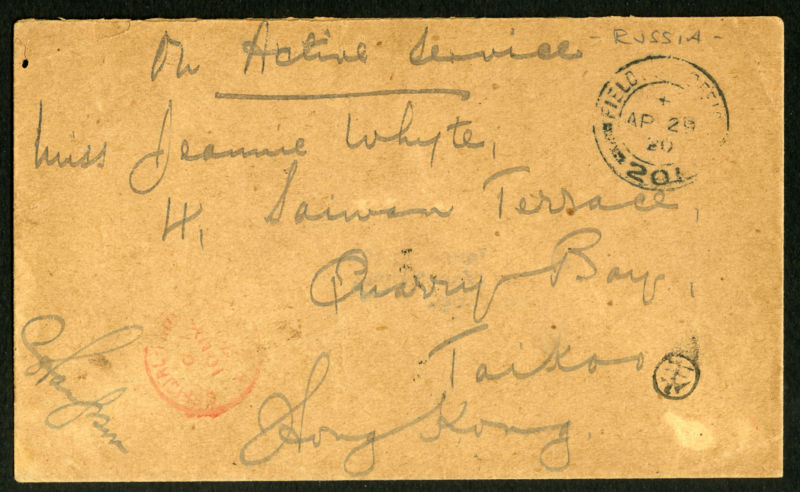 - RUSSIA -
On Active Service
FIELD
AP 29
20
201
Miss Jeannie Whyte,
4, Saiwan Terrace,
Quarry Bay,
Taikoo
Hong Kong.